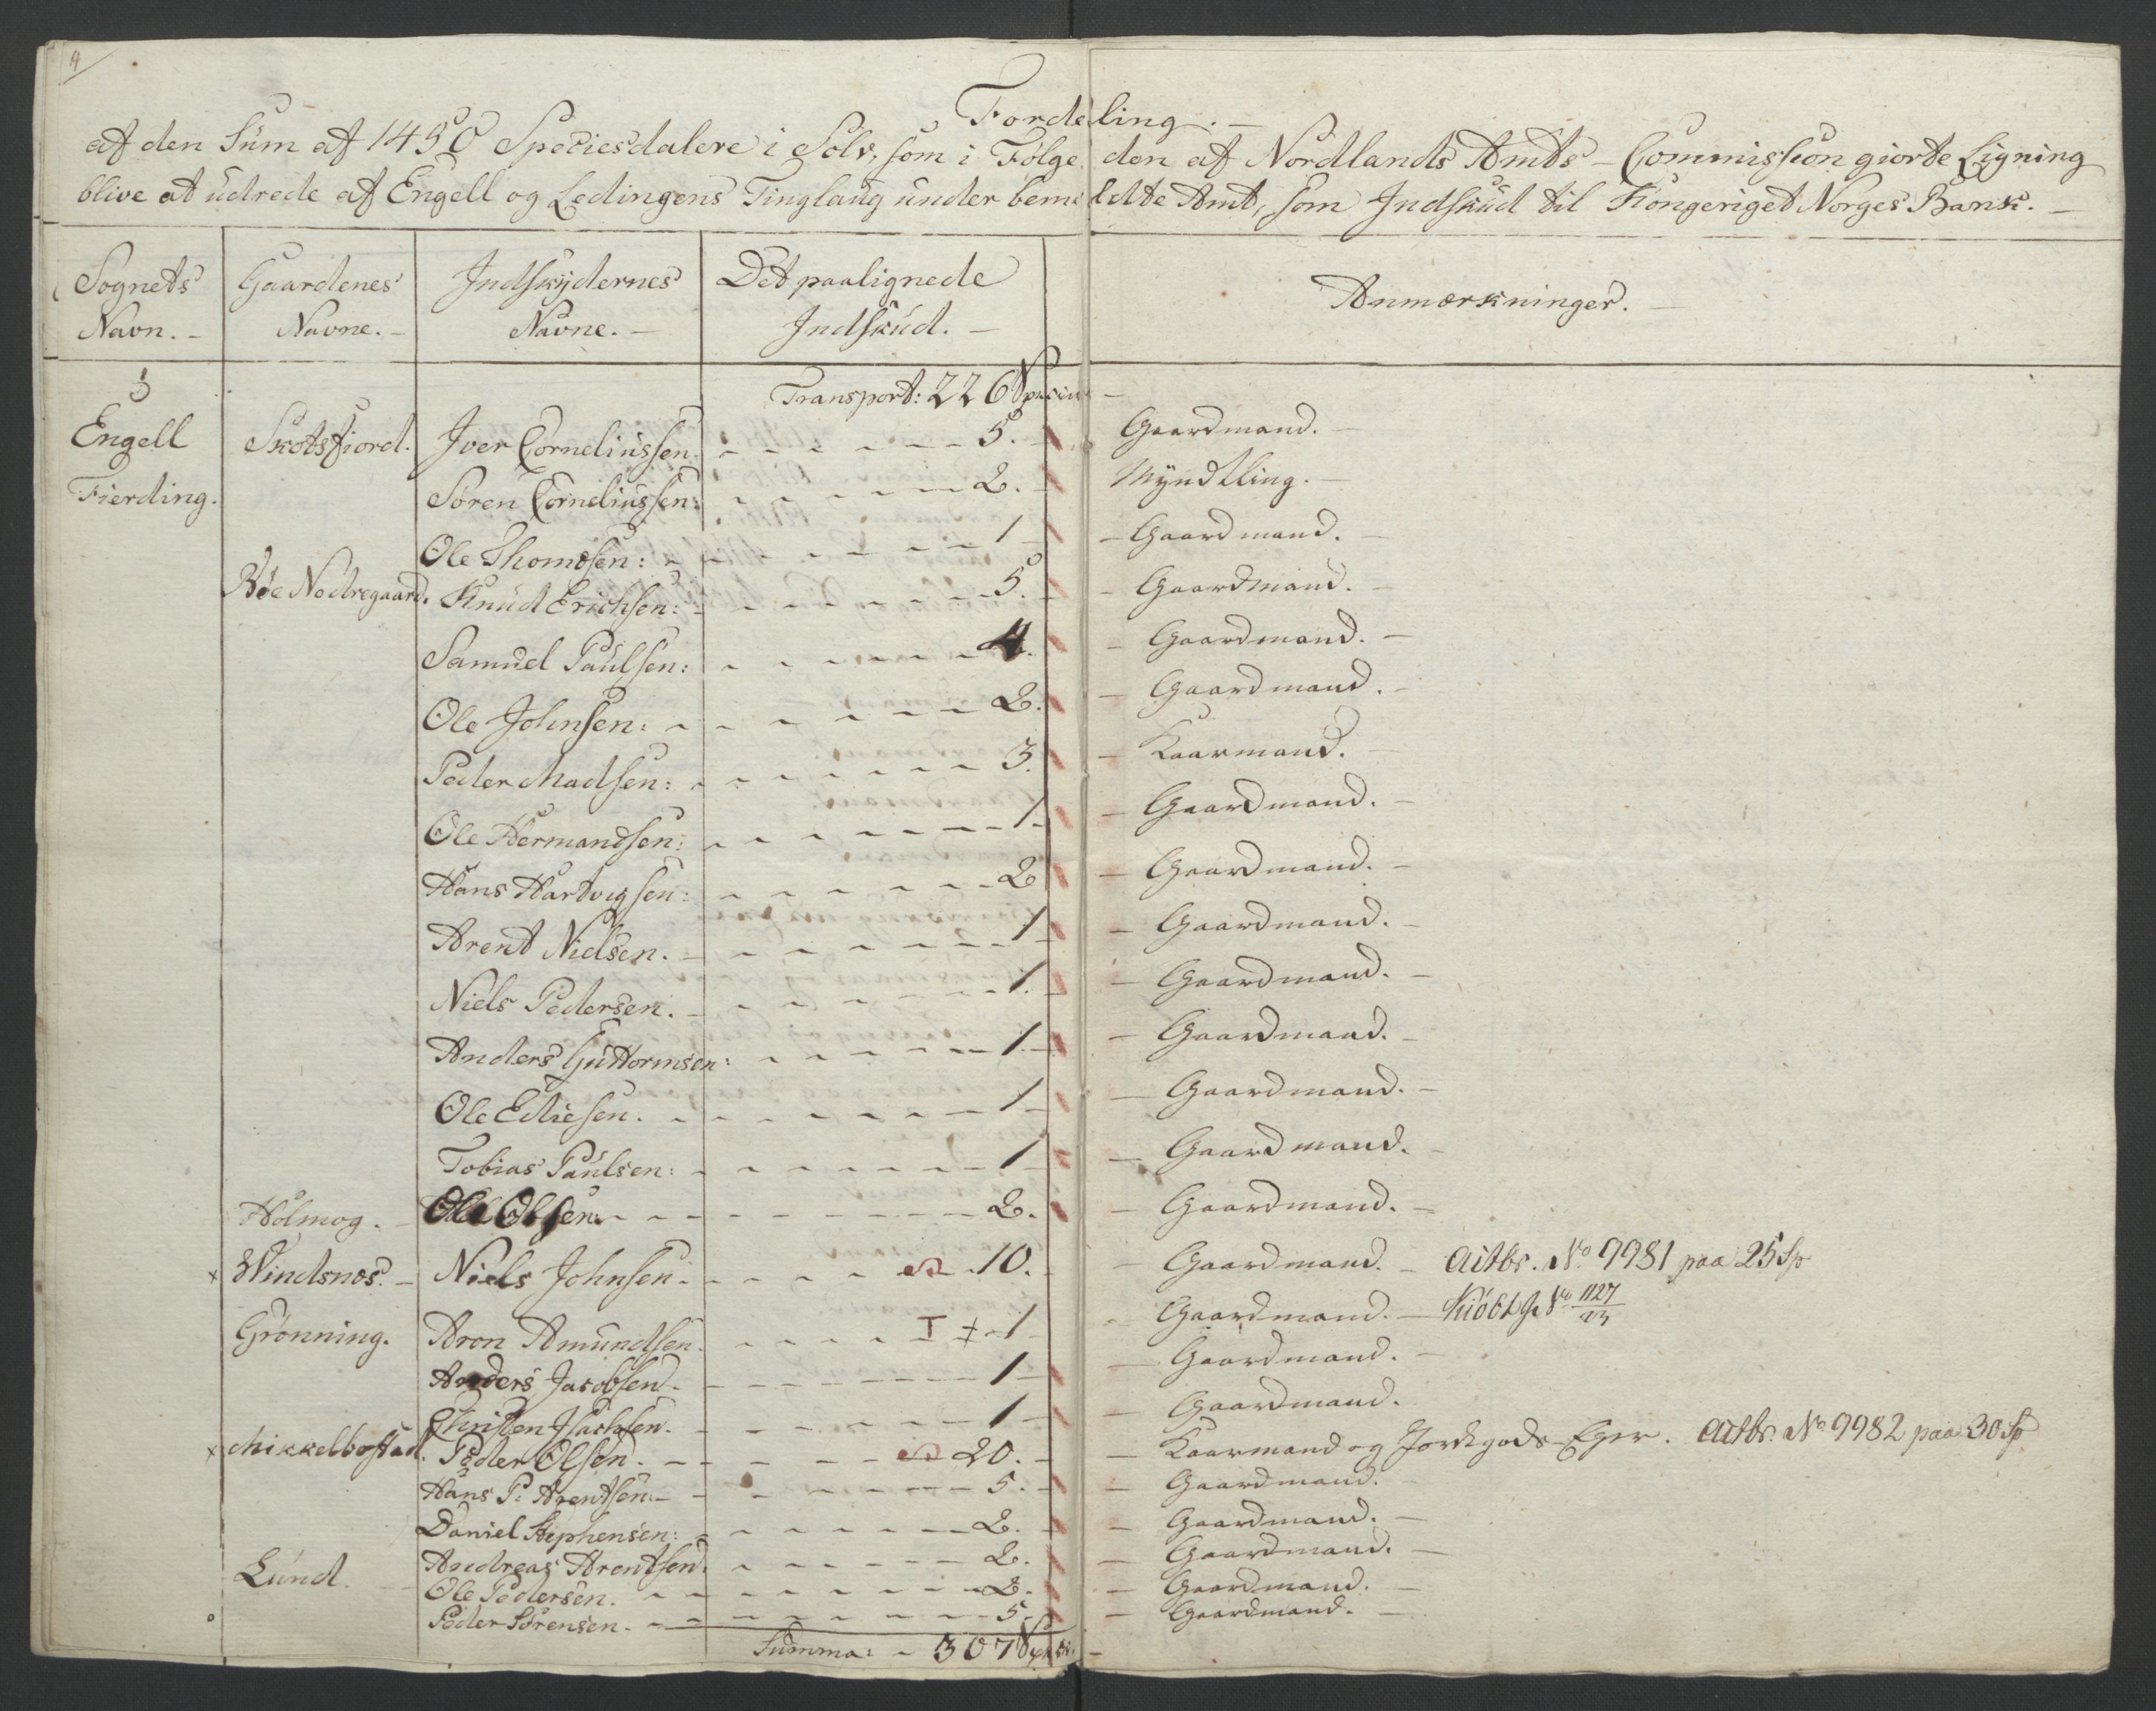 4
Fordeling.
af den Sum af 1450 Speciesdalere i Sølv, som i Følge den af Nordlands Amts-Commission giorte Ligning
blive at udrede af Engell og Ledingens Tinglaug under bemeldte Amt, som Indskud til Kongeriget Norges Bank.
Sognets Navn. Gaardenes Navne. Indskydernes Navne. Det paalignede Indskud. Anmærkninger.
Transport: 226 Species
Engell Skotsfiord. Iver Corneliussen 5. Gaardmand.
Fierding. Søren Corneliussen: 2. Myndtling.
Ole Thomsen: 1 Gaardmand.
Bøe Nedregaard. Knud Erichsen: 5. Gaardmand.
Samuel Paulsen: 4. Gaardmand.
Ole Johnsen: 2. Gaardmand.
Peder Madsen: 3. Kaarmand.
Ole Hermandsen: 1 Gaardmand.
Hans Hartvigsen: 2 Gaardmand.
Arent Nielsen. 1 Gaardmand.
Niels Pedersen. 1. Gaardmand.
Anders Guttormsen: 1. Gaardmand.
Ole Eliesen. 1 Gaardmand.
Tobias Paulsen: 1 Gaardmand.
Holmog. Ole Olsen. 2. Gaardmand.
x Windsnes. Niels Johnsen. 10. Gaardmand. Actbr. No 9981 paa 25 Sp
Grønning. Aron Amundsen. T ‡ 1 Gaardmand. Kiøbt No 1127
Anders Jacobsen. 1 Gaardmand.
Christen Isachsen. 1 Gaardmand.
x Mikkelbostad. Peder Olsen. 20. Kaarmand og Jordegods-Eger. Actbr. No 9982 paa 30 Sp
Hans P. Arentsen. 5. Gaardmand.
Daniel Stephensen: 2. Gaardmand.
Lund. Andreas Arentsen. 2. Gaardmand.
Ole Pedersen. 2. Gaardmand.
Peder Sørensen. 5. Gaardmand.
Summa: 307 Species